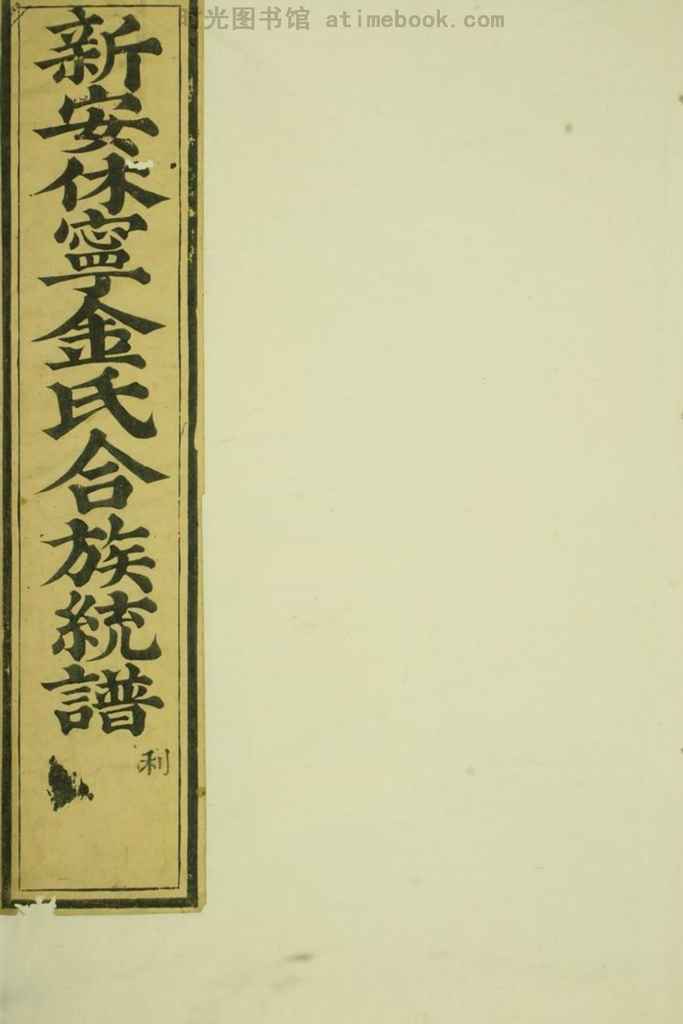 时光图书馆 atimebook.com
新安休寧金氏合族統譜
利